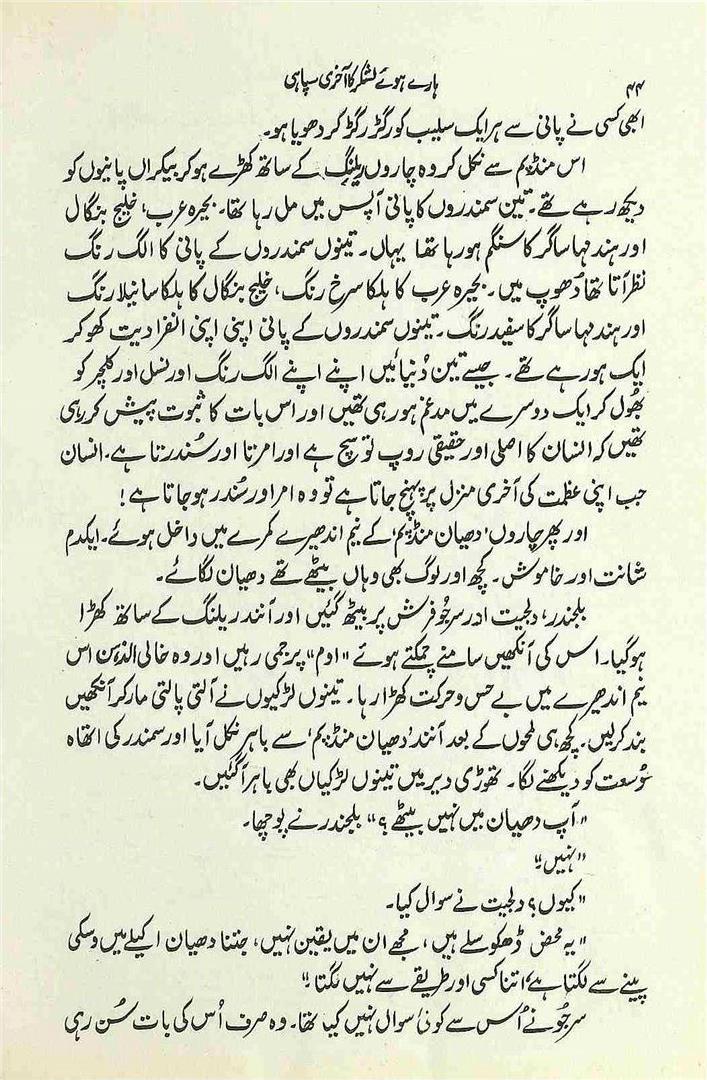 ۴۴
ہارے ہوئے لشکر کا آخری سپاہی
ابھی کسی نے پانی سے ہر ایک سلیب کو رگڑ رگڑ کر دھویا ہو۔
اس منڈپم سے نکل کر وہ چاروں ریلنگ کے ساتھ کھڑے ہو کر بیکراں پانیوں کو
دیکھ رہے تھے۔ تین سمندروں کا پانی آپس میں مل رہا تھا۔ بحیرہ عرب، خلیج بنگال
اور ہند مہاساگر کا سنگم ہو رہا تھا یہاں۔ تینوں سمندروں کے پانی کا الگ رنگ
نظر آتا تھا دُھوپ میں۔ بحیرہ عرب کا ہلکا سرخ رنگ، خلیج بنگال کا ہلکا سانیلا رنگ
اور ہند مہا ساگر کا سفید رنگ۔ تینوں سمندروں کے پانی اپنی اپنی انفرادیت کھو کر
ایک ہو رہے تھے۔ جیسے تین دُنیائیں اپنے اپنے الگ رنگ اور نسل اور کلچر کو
بھُول کر ایک دوسرے میں مدغم ہو رہی تھیں اور اس بات کا ثبوت پیش کر رہی
تھیں کہ انسان کا اصلی اور حقیقی روپ تو سچ ہے اور امرتا اور سُندرتا ہے۔ انسان
جب اپنی عظمت کی آخری منزل پر پہنچ جاتا ہے تو وہ امر اور سُندر ہو جاتا ہے!
اور پھر چاروں ’دھیان منڈپم‘ کے نیم اندھیرے کمرے میں داخل ہوئے۔ ایکدم
شانت اور خاموش۔ کچھ اور لوگ بھی وہاں بیٹھے تھے دھیان لگائے۔
بلجندر، دلجیت اور سرجُو فرش پر بیٹھ گئیں اور آنند ریلنگ کے ساتھ کھڑا
ہو گیا۔ اس کی آنکھیں سامنے چمکتے ہوئے "اوم" پر جمی رہیں اور وہ خالی الذہن اس
نیم اندھیرے میں بے حس و حرکت کھڑا رہا۔ تینوں لڑکیوں نے آلتی پالتی مار کر آنکھیں
بند کر لیں۔ کچھ ہی لمحوں کے بعد آنند ’دھیان منڈپم‘ سے باہر نکل آیا اور سمندر کی اتھاہ
وُسعت کو دیکھنے لگا۔ تھوڑی دیر میں تینوں لڑکیاں بھی باہر آگئیں۔
"آپ دھیان میں نہیں بیٹھے؟" بلجندر نے پوچھا۔
"نہیں۔"
"کیوں؟ دلجیت نے سوال کیا۔
"یہ محض ڈھکوسلے ہیں، مجھے ان میں یقین نہیں، جتنا دھیان اکیلے میں وسکی
پینے سے لگتا ہے، اتنا کسی اور طریقے سے نہیں لگتا۔"
سرجُو نے اُس سے کوئی سوال نہیں کیا تھا۔ وہ صرف اُس کی بات سُن رہی